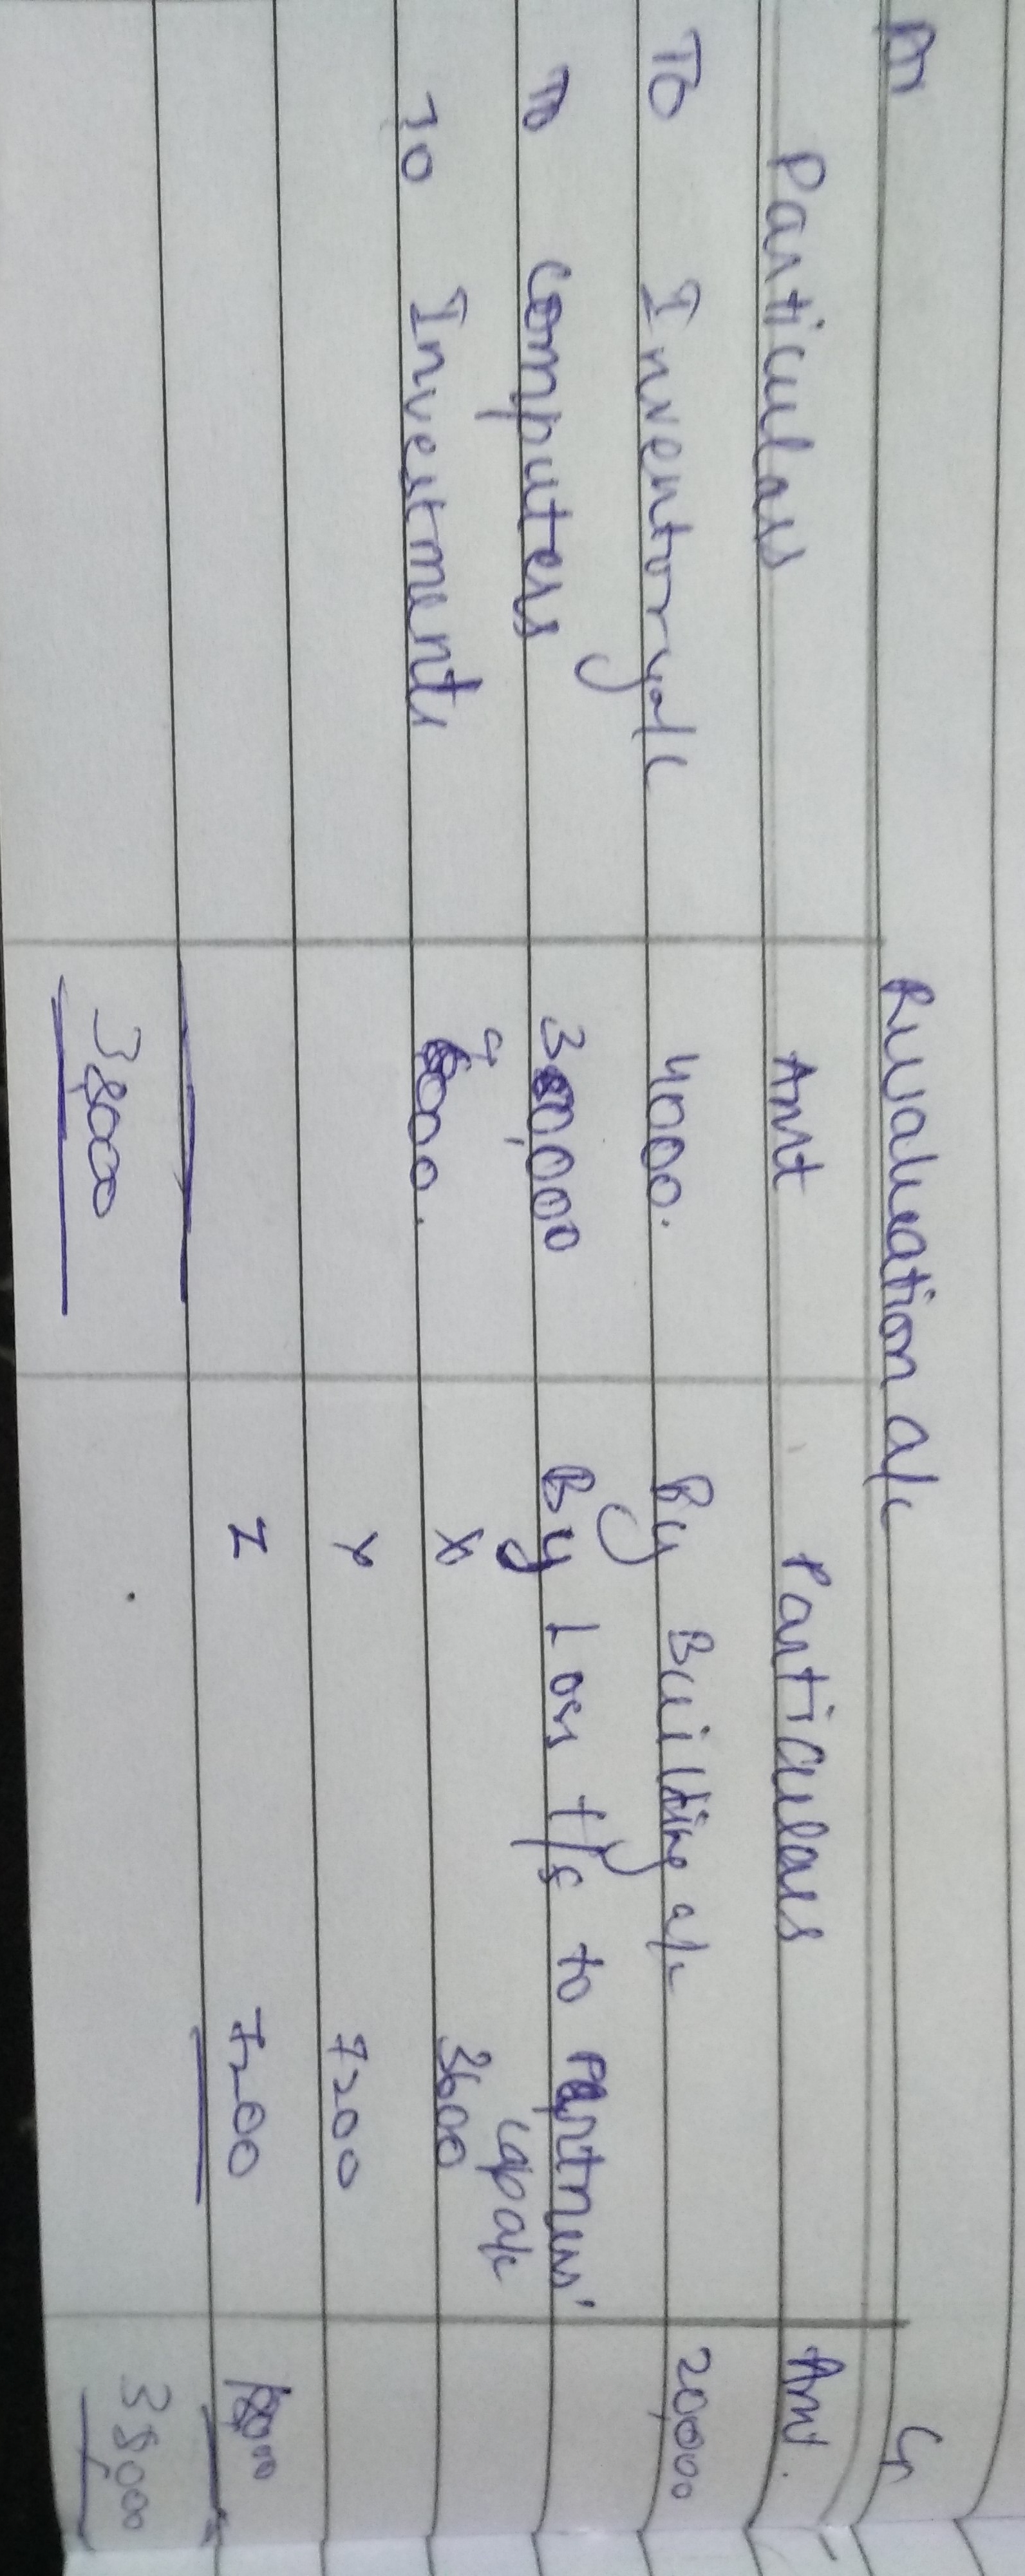 Dr Revaluation a/c Cr
Particulars Amt Particulars Amt.
To Inventory a/c 4000. By Building a/c 20,000
To Computers 30,000 By Loss t/f to Partners'
cap a/c
To Investments 4000. X 3600
Y 7200
Z 7200 18000
38,000 38,000